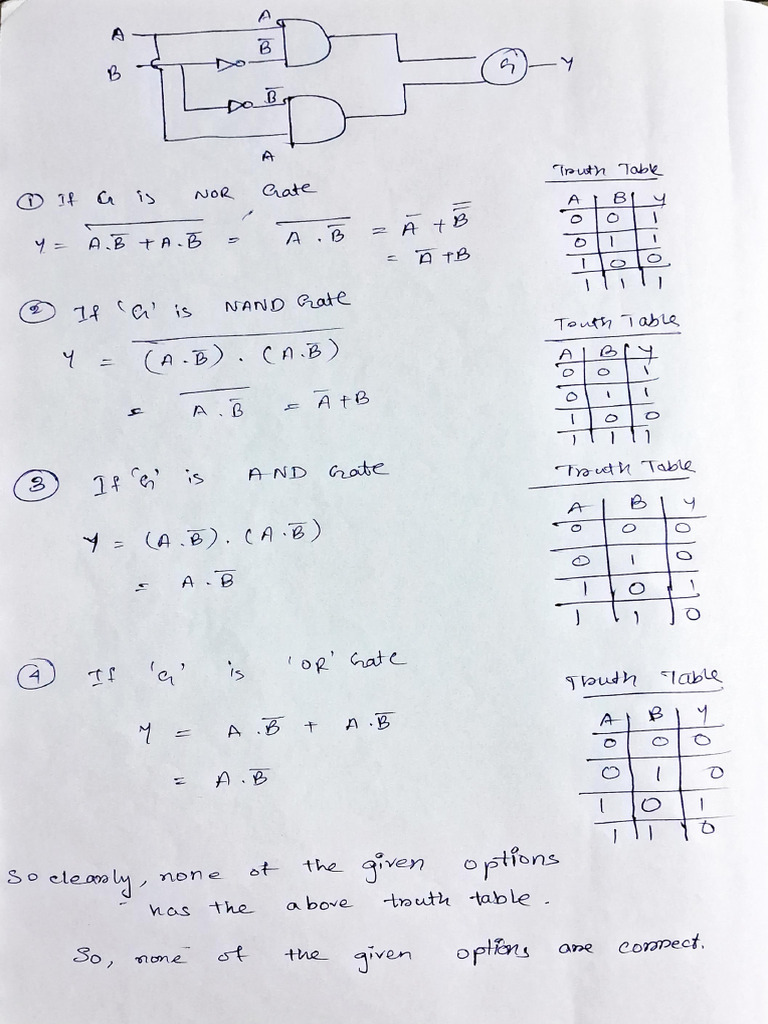 A
A
B̅
B
G
Y
B̅
A
① If G is NOR Gate
Y = \overline{A.B̅ + A.B̅} = \overline{A . B̅} = A̅ + B̿
= A̅ + B
Truth Table
A B Y
0 0 1
0 1 1
1 0 0
1 1 1
② If 'G' is NAND Gate
Y = \overline{(A.B̅) . (A.B̅)}
= \overline{A . B̅} = A̅ + B
Touth Table
A B Y
0 0 1
0 1 1
1 0 0
1 1 1
③ If 'G' is AND Gate
Y = (A.B̅) . (A.B̅)
= A . B̅
Truth Table
A B Y
0 0 0
0 1 0
1 0 1
1 1 0
④ If 'G' is 'OR' Gate
Y = A . B̅ + A . B̅
= A . B̅
Truth Table
A B Y
0 0 0
0 1 0
1 0 1
1 1 0
So clearly, none of the given options
has the above truth table.
So, none of the given options are correct.